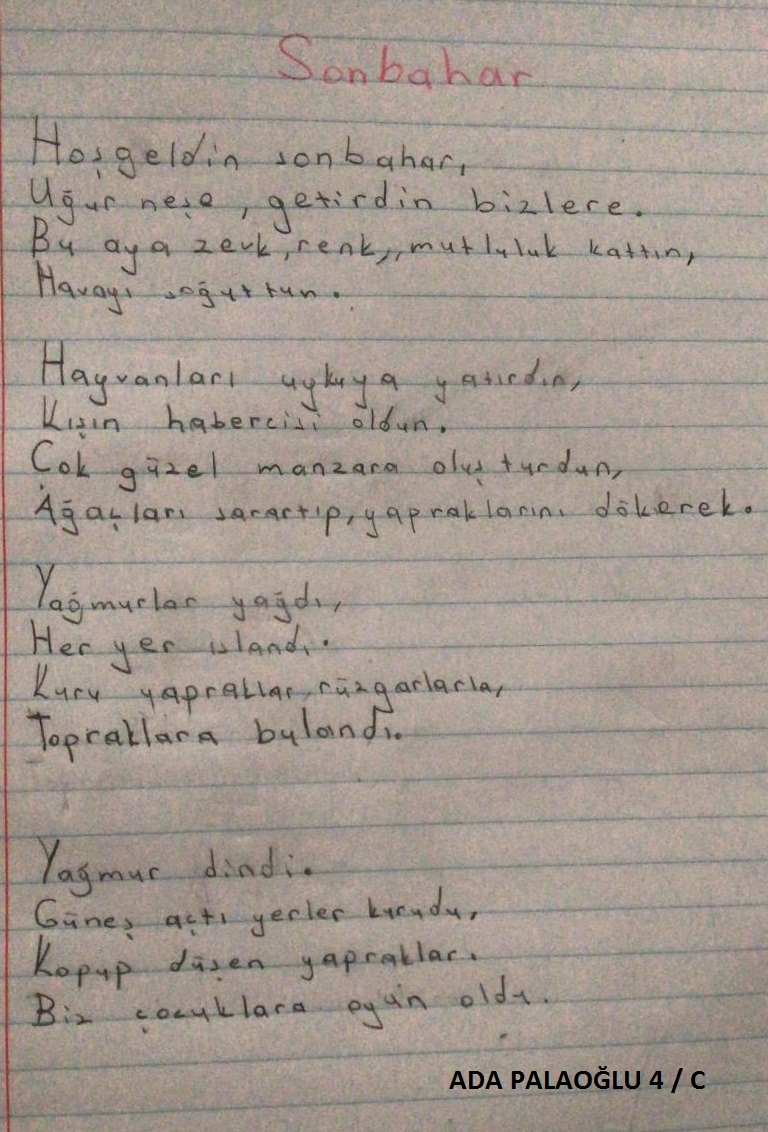 Sonbahar
Hoşgeldin sonbahar,
Uğur neşe, getirdin bizlere.
Bu aya zevk, renk,,, mutluluk kattın,
Havayı soğuttun.
Hayvanları uykuya yatırdın,
Kışın habercisi oldun.
Çok güzel manzara oluşturdun,
Ağaçları sarartıp, yapraklarını dökerek.
Yağmurlar yağdı,
Her yer ıslandı.
Kuru yapraklar rüzgarlarla,
Topraklara bulandı.
Yağmur dindi.
Güneş açtı yerler kurudu,
Kopup düşen yapraklar.
Biz çocuklara oyun oldu.
ADA PALAOĞLU 4 / C